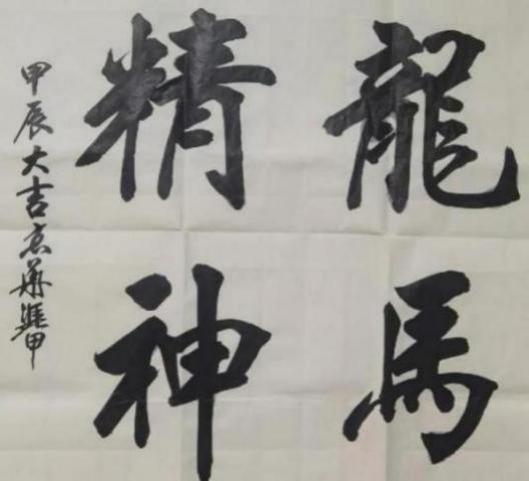 龍馬
精神
甲辰大吉京華